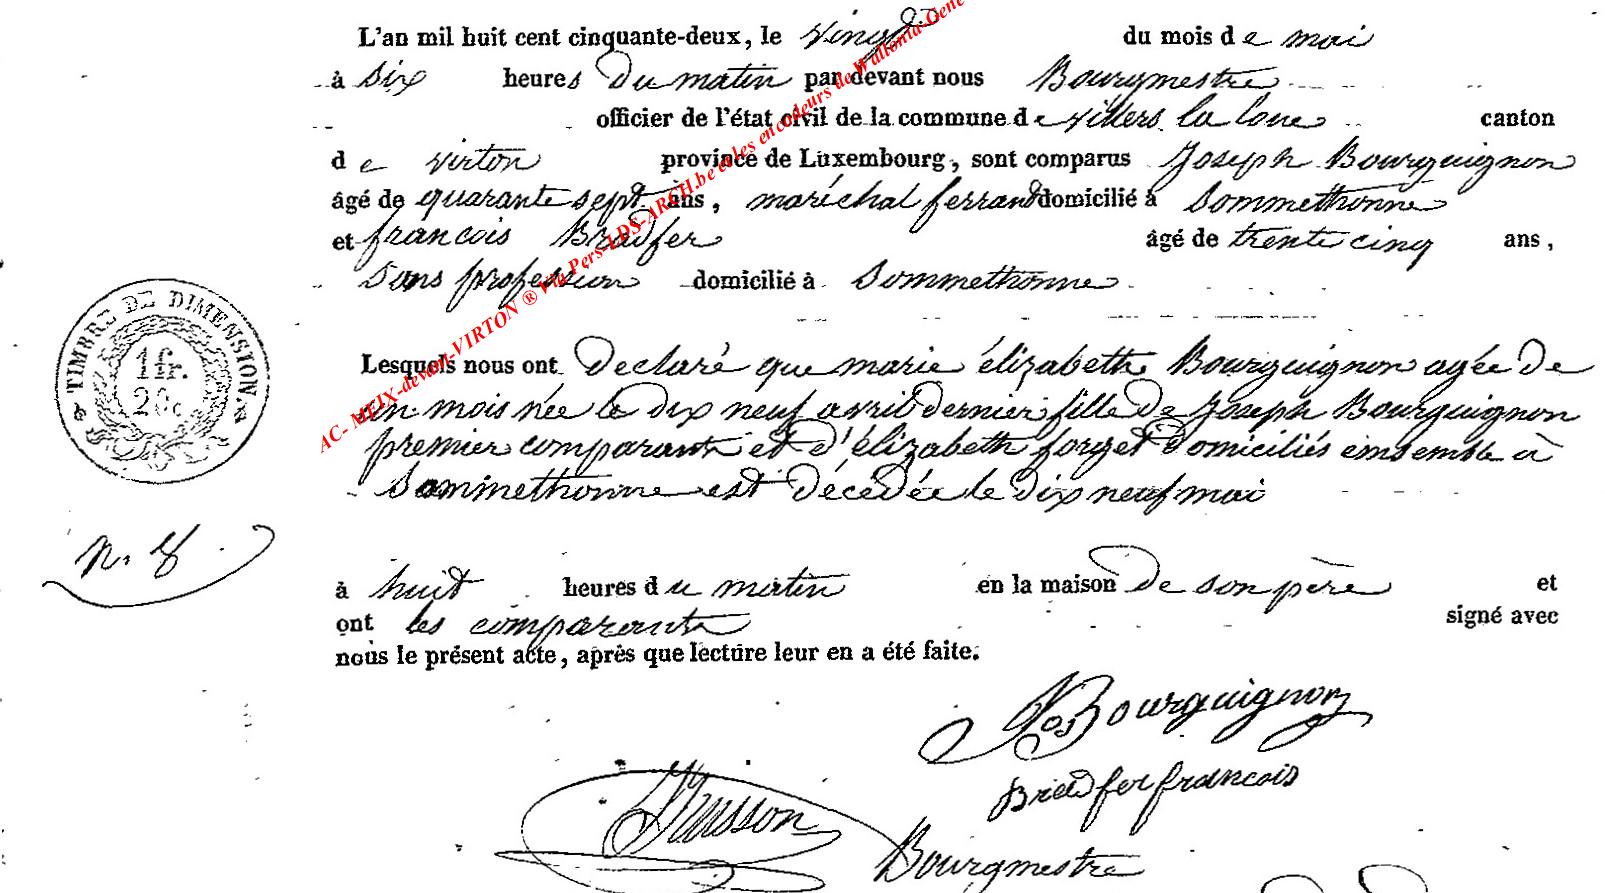 L'an mil huit cent cinquante-deux, le vingt du mois de mai
à six heures du matin par devant nous Bourgmestre
officier de l'état civil de la commune de villers la loue canton
de virton province de Luxembourg, sont comparus Joseph Bourguignon
âgé de quarante sept ans, maréchal ferrand domicilié à Sommethonne
et francois Bradfer âgé de trente cinq ans,
sans profession domicilié à Sommethonne
Lesquels nous ont declaré que marie élizabeth Bourguignon agée de
un mois née le dix neuf avril dernier fille de Joseph Bourguignon
premier comparant et d'élizabeth forget domiciliés ensemble à
Sommethonne est décédée le dix neuf mai
à huit heures du matin en la maison de son père et
ont les comparants signé avec
nous le présent acte, après que lecture leur en a été faite.
TIMBRE DE DIMENSION
1 fr.
20c
n. 8
Jos Bourguignon
Bradfer francois
Bourgmestre
AC- MEIX-devant-VIRTON ® Via Pers-LDS-ARCH.be et les encodeurs de Wallonia-Gene